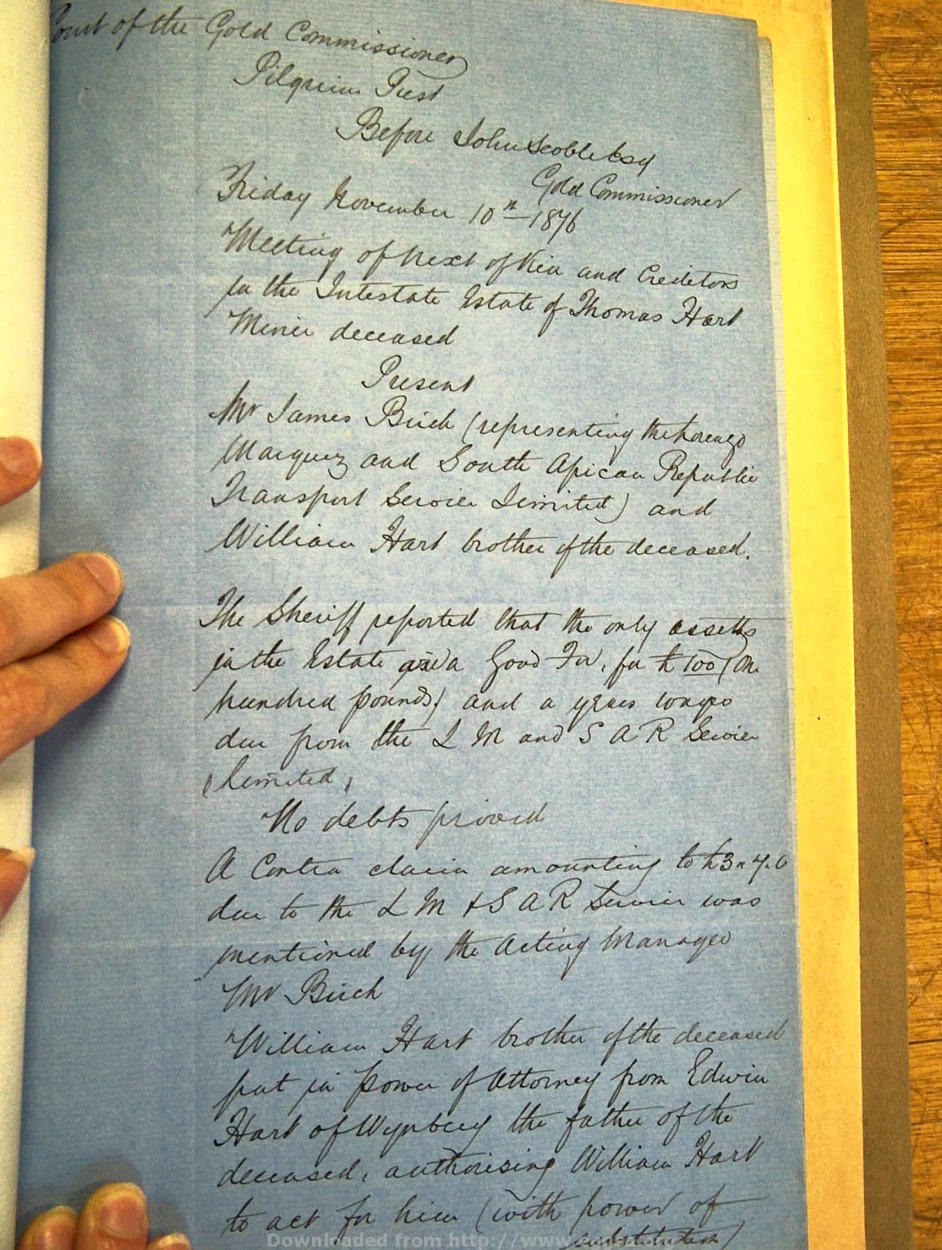 Court of the Gold Commissioner
Pilgrims Rest
Before John Scoble Esq
Gold Commissioner
Friday November 10th 1876
Meeting of Next of Kin and Creditors
in the Intestate Estate of Thomas Hart
Miner deceased
Present
Mr James Birch (representing the Lorenzo
Marquez and South African Republic
Transport Service Limited) and
William Hart brother of the deceased.
The Sheriff reported that the only assetts
in the Estate are a Good For, for £100 (One
hundred pounds) and a years wages
due from the L M and S A R Service
(Limited)
No debts proved
A Contra claim amounting to £3 " 7. 6
due to the L M & S A R Service was
mentioned by the Acting Manager
Mr Birch
William Hart brother of the deceased
put in power of Attorney from Edwin
Hart of Wynberg the father of the
deceased, authorising William Hart
to act for him (with power of
substitution)
Downloaded from http://www.